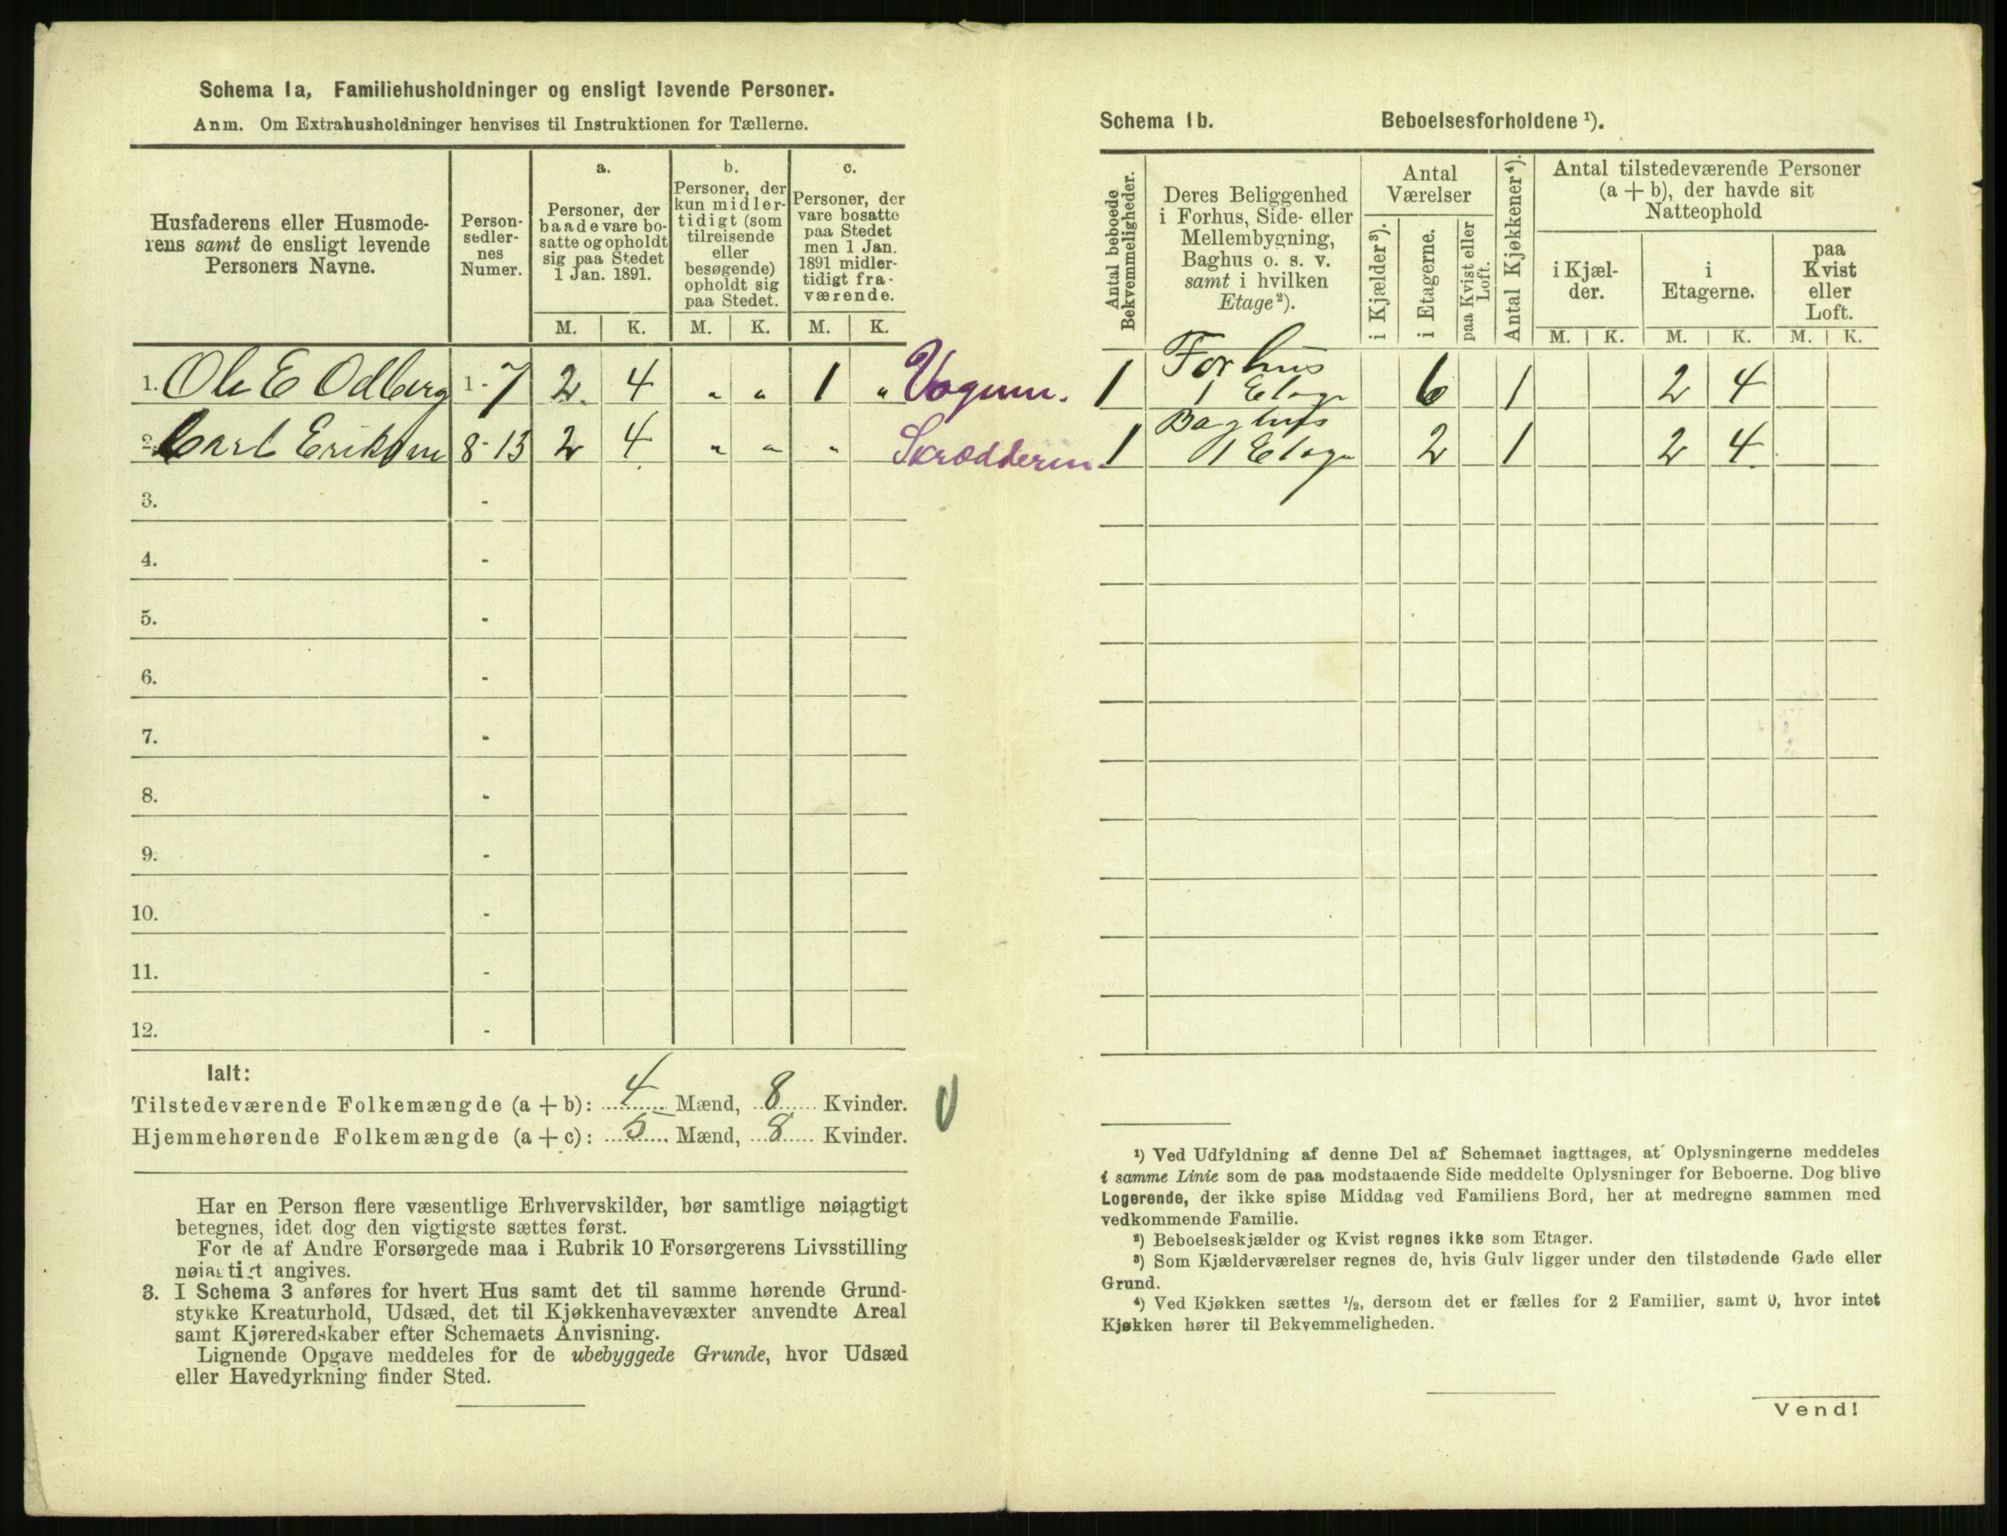 Schema 1a, Familiehusholdninger og ensligt levende Personer.
Anm. Om Extrahusholdninger henvises til Instruktionen for Tællerne.
Husfaderens eller Husmode-
rens samt de ensligt levende
Personers Navne.
Person-
sedler-
nes
Numer.
a.
Personer, der
baade vare bo-
satte og opholdt
sig paa Stedet
1 Jan. 1891.
b.
Personer, der
kun midler-
tidigt (som
tilreisende
eller
besøgende)
opholdt sig
paa Stedet.
c.
Personer, der
vare bosatte
paa Stedet
men 1 Jan.
1891 midler-
tidigt fra-
værende.
M. K. M. K. M. K.
1. Ole E Odberg 1 - 7 2 4 „ „ 1 „
2. Carl Eriksen 8 - 13 2 4 „ „ „
3. -
4. -
5. -
6. -
7. -
8. -
9. -
10. -
11. -
12. -
Ialt:
Tilstedeværende Folkemængde (a + b): 4 Mænd, 8 Kvinder.
Hjemmehørende Folkemængde (a + c): 5 Mænd, 8 Kvinder.
Har en Person flere væsentlige Erhvervskilder, bør samtlige nøiagtigt
betegnes, idet dog den vigtigste sættes først.
For de af Andre Forsørgede maa i Rubrik 10 Forsørgerens Livsstilling
nøiagtigt angives.
3. I Schema 3 anføres for hvert Hus samt det til samme hørende Grund-
stykke Kreaturhold, Udsæd, det til Kjøkkenhavevæxter anvendte Areal
samt Kjøreredskaber efter Schemaets Anvisning.
Lignende Opgave meddeles for de ubebyggede Grunde, hvor Udsæd
eller Havedyrkning finder Sted.
Schema 1b. Beboelsesforholdene ¹).
Antal beboede
Bekvemmeligheder.
Deres Beliggenhed
i Forhus, Side- eller
Mellembygning,
Baghus o. s. v.
samt i hvilken
Etage²).
Antal
Værelser
i Kjælder³).
i Etagerne.
paa Kvist eller
Loft.
Antal Kjøkkener⁴).
Antal tilstedeværende Personer
(a + b), der havde sit
Natteophold
i Kjæl-
der.
i
Etagerne.
paa
Kvist
eller
Loft.
M. K. M. K. M. K.
1 Forhus
1 Etage 6 1 2 4
1 Baghus
1 Etage 2 1 2 4
¹) Ved Udfyldning af denne Del af Schemaet iagttages, at Oplysningerne meddeles
i samme Linie som de paa modstaaende Side meddelte Oplysninger for Beboerne. Dog blive
Logerende, der ikke spise Middag ved Familiens Bord, her at medregne sammen med
vedkommende Familie.
²) Beboelseskjælder og Kvist regnes ikke som Etager.
³) Som Kjælderværelser regnes de, hvis Gulv ligger under den tilstødende Gade eller
Grund.
⁴) Ved Kjøkken sættes ½, dersom det er fælles for 2 Familier, samt 0, hvor intet
Kjøkken hører til Bekvemmeligheden.
Vend!